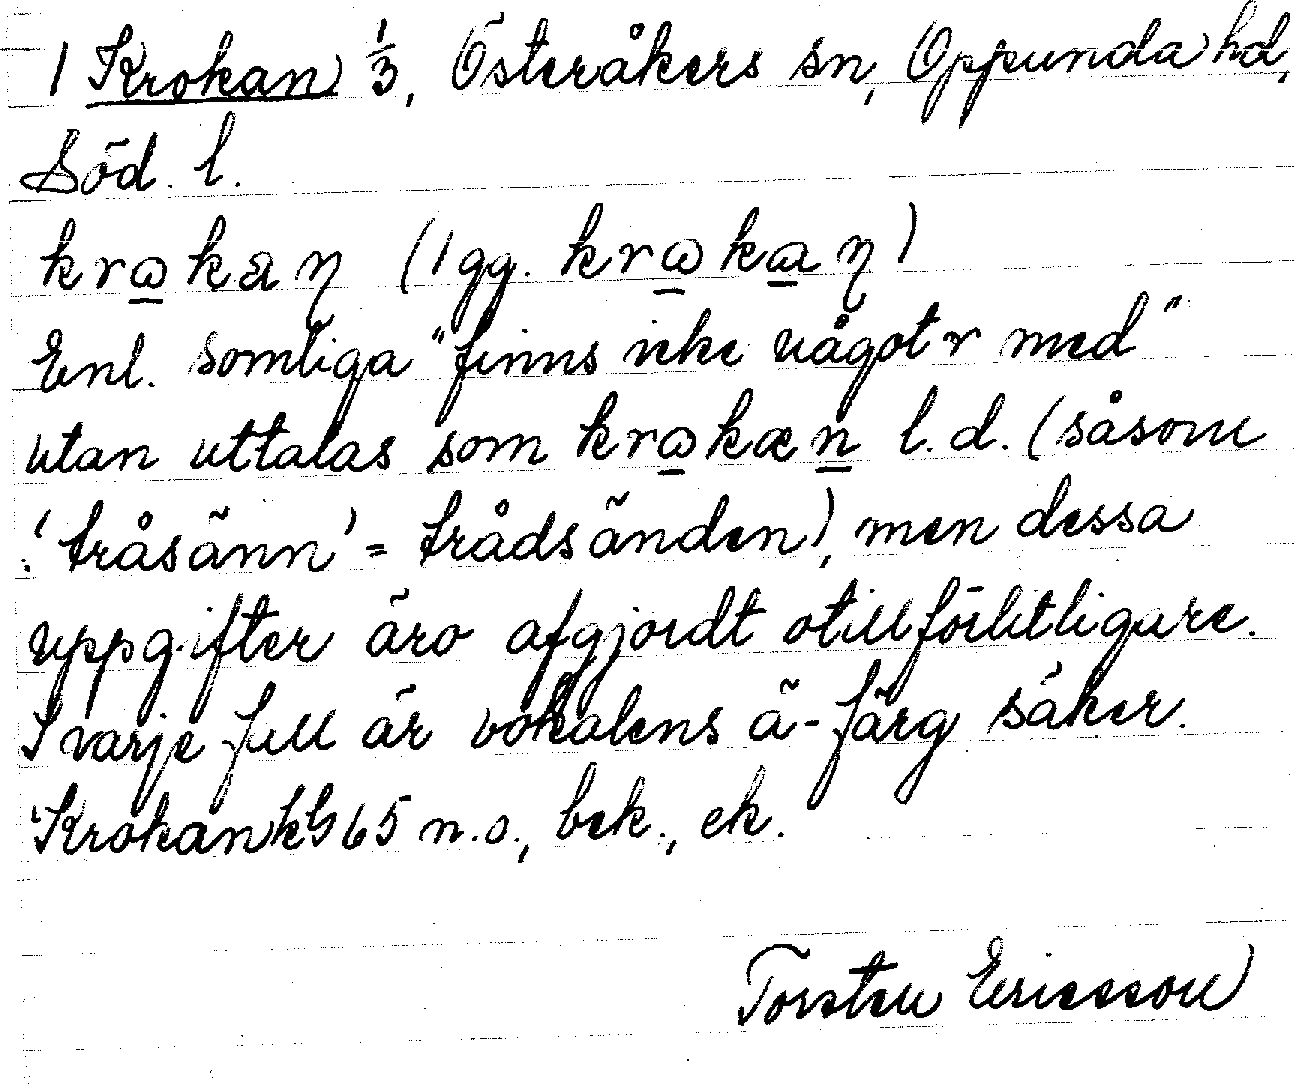 1 Krokan 1/3, Österåkers sn, Oppunda hd,
Söd. l.
krɷkaŋ (1 gg. krɷkaŋ)
Enl. somliga "finns icke något r med"
utan uttalas som krɷkæn l.d. (såsom
'tråsänn' = trådsänden), men dessa
uppgifter äro afgjordt otillförlitligare.
I varje fall är vokalens ä-färg säker.
Krokan 65 n.o., bek., ek.
Torsten Ericsson